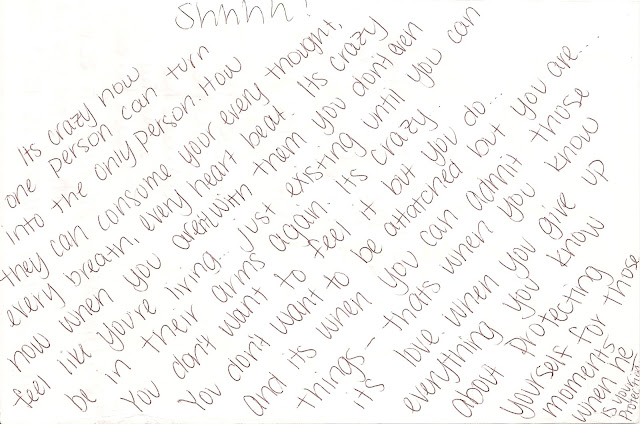 Shhhh!
Its crazy now
one person can turn
into the only person. How
they can consume your every thought,
every breath, every heart beat. Its crazy
now when you aren't with them you don't even
feel like you're living... Just existing until you can
be in their arms again. Its crazy.
You don't want to feel it but you do...
You don't want to be attatched but you are...
and its when you can admit those
things - thats when you know
its love. When you give up
everything you know
about protecting
yourself for those
moments
when he
is your
Protection